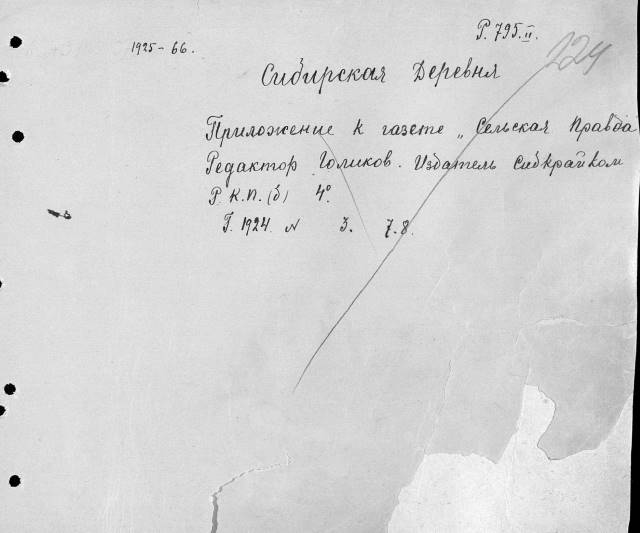 Р. 795.II.
1925-66.
224
Сибирская Деревня
Приложение к газете „Сельская Правда
Редактор Голиков. Издатель Сибкрайком
Р.К.П.(б) 4°.
Г. 1924. N 3. 7.8.